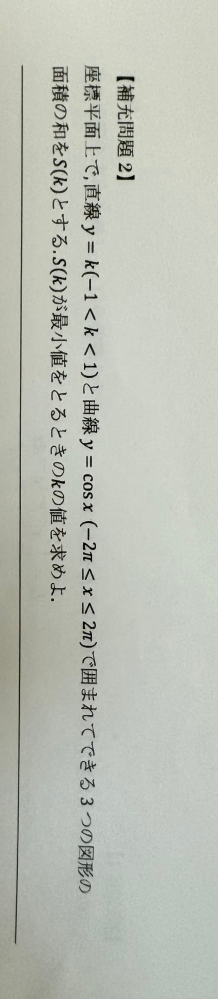 【補充問題 2】
座標平面上で, 直線 y = k(−1 < k < 1)と曲線 y = cos x (−2π ≤ x ≤ 2π)で囲まれてできる 3 つの図形の
面積の和をS(k)とする. S(k)が最小値をとるときのkの値を求めよ.